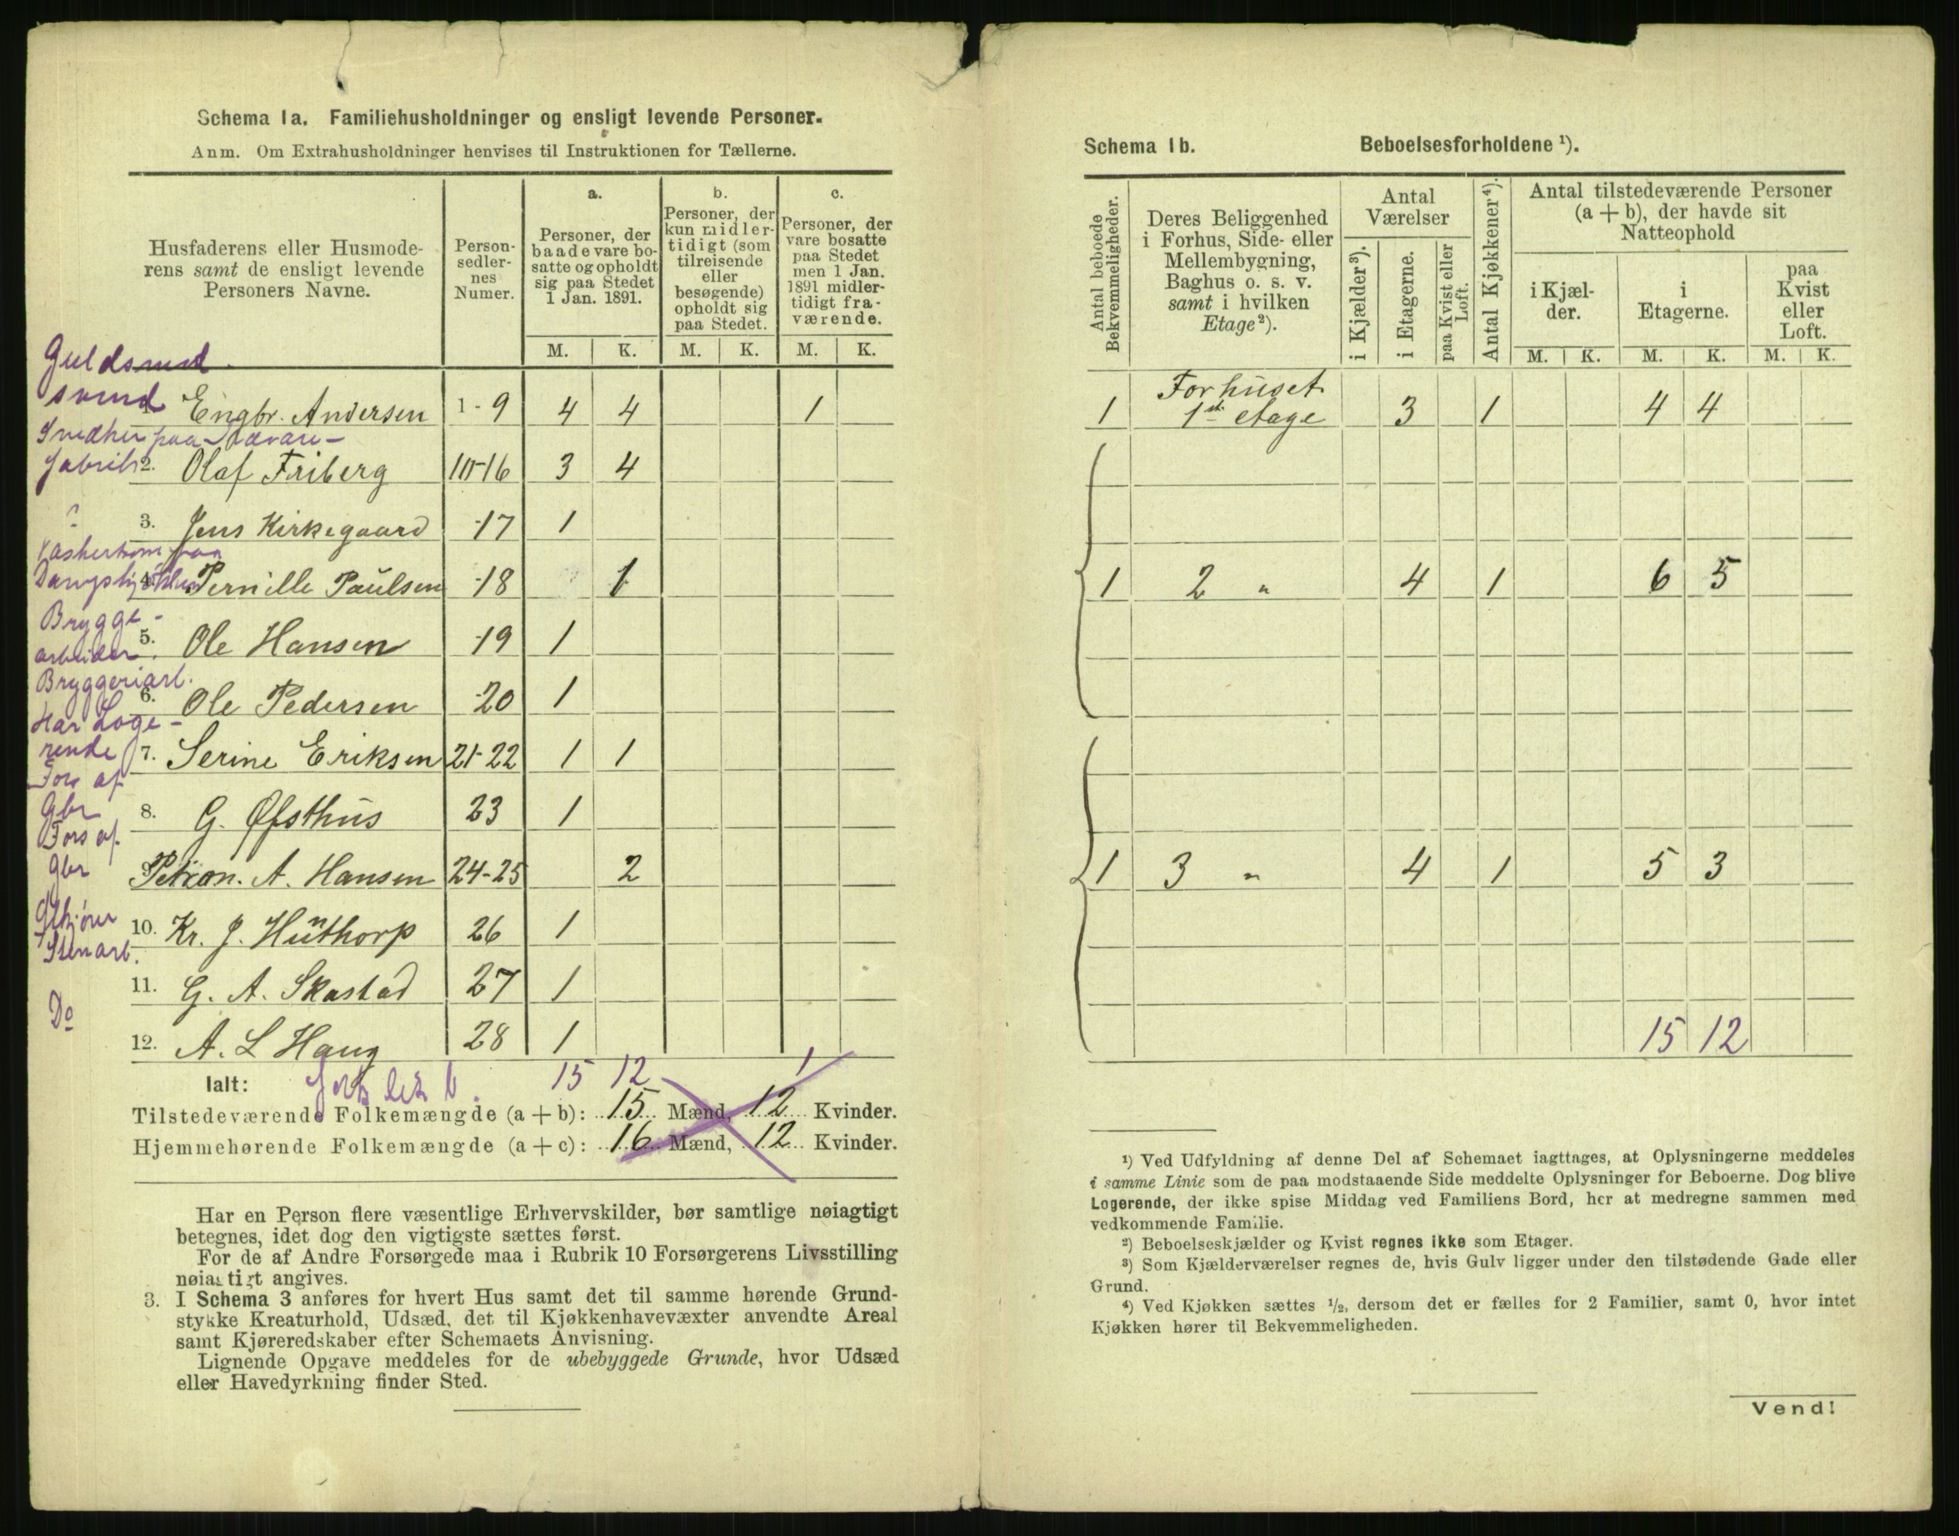 Schema 1a. Familiehusholdninger og ensligt levende Personer.
Anm. Om Extrahusholdninger henvises til Instruktionen for Tællerne.
Husfaderens eller Husmoderens samt de ensligt levende Personers Navne.
Personsedlernes Numer.
a. Personer, der baade vare bosatte og opholdt sig paa Stedet 1 Jan. 1891.
b. Personer, der kun midlertidigt (som tilreisende eller besøgende) opholdt sig paa Stedet.
c. Personer, der vare bosatte paa Stedet men 1 Jan. 1891 midlertidigt fraværende.
M. K. M. K. M. K.
Guldsmed
svend
1. Engbr. Andersen 1-9 4 4 1
fabrik
2. Olaf Friberg 10-16 3 4
3. Jens Kirkegaard -17 1
4. Pernille Paulsen -18 1
Brygge-
arbeider.
5. Ole Hansen -19 1
Bryggeriarb.
6. Ole Pedersen -20 1
Har Loge-
rende
7. Serine Eriksen 21-22 1 1
Fors af
Gbr
8. G. Øfsthus 23 1
Fors af
Gbr
Petron. A. Hansen 24-25 2
10. Kr. J. Huthorp 26 1
Stenarb.
11. G. A. Skastad 27 1
Do
12. A. L Haug 28 1
Ialt: 15 12 1
Tilstedeværende Folkemængde (a + b): 15 Mænd, 12 Kvinder.
Hjemmehørende Folkemængde (a + c): 16 Mænd, 12 Kvinder.
Har en Person flere væsentlige Erhvervskilder, bør samtlige nøiagtigt
betegnes, idet dog den vigtigste sættes først.
For de af Andre Forsørgede maa i Rubrik 10 Forsørgerens Livsstilling
nøiagtigt angives.
3. I Schema 3 anføres for hvert Hus samt det til samme hørende Grund-
stykke Kreaturhold, Udsæd, det til Kjøkkenhavevæxter anvendte Areal
samt Kjøreredskaber efter Schemaets Anvisning.
Lignende Opgave meddeles for de ubebyggede Grunde, hvor Udsæd
eller Havedyrkning finder Sted.
Schema 1b. Beboelsesforholdene ¹).
Antal beboede Bekvemmeligheder.
Deres Beliggenhed i Forhus, Side- eller Mellembygning, Baghus o. s. v. samt i hvilken Etage ²).
Antal Værelser
i Kjælder ³).
i Etagerne.
paa Kvist eller Loft.
Antal Kjøkkener ⁴).
Antal tilstedeværende Personer (a + b), der havde sit Natteophold
i Kjælder.
i Etagerne.
paa Kvist eller Loft.
M. K. M. K. M. K.
1 Forhuset 1st etage 3 1 4 4
1 2 " 4 1 6 5
1 3 " 4 1 5 3
15 12
¹) Ved Udfyldning af denne Del af Schemaet iagttages, at Oplysningerne meddeles
i samme Linie som de paa modstaaende Side meddelte Oplysninger for Beboerne. Dog blive
Logerende, der ikke spise Middag ved Familiens Bord, her at medregne sammen med
vedkommende Familie.
²) Beboelseskjælder og Kvist regnes ikke som Etager.
³) Som Kjælderværelser regnes de, hvis Gulv ligger under den tilstødende Gade eller
Grund.
⁴) Ved Kjøkken sættes ½, dersom det er fælles for 2 Familier, samt 0, hvor intet
Kjøkken hører til Bekvemmeligheden.
Vend!